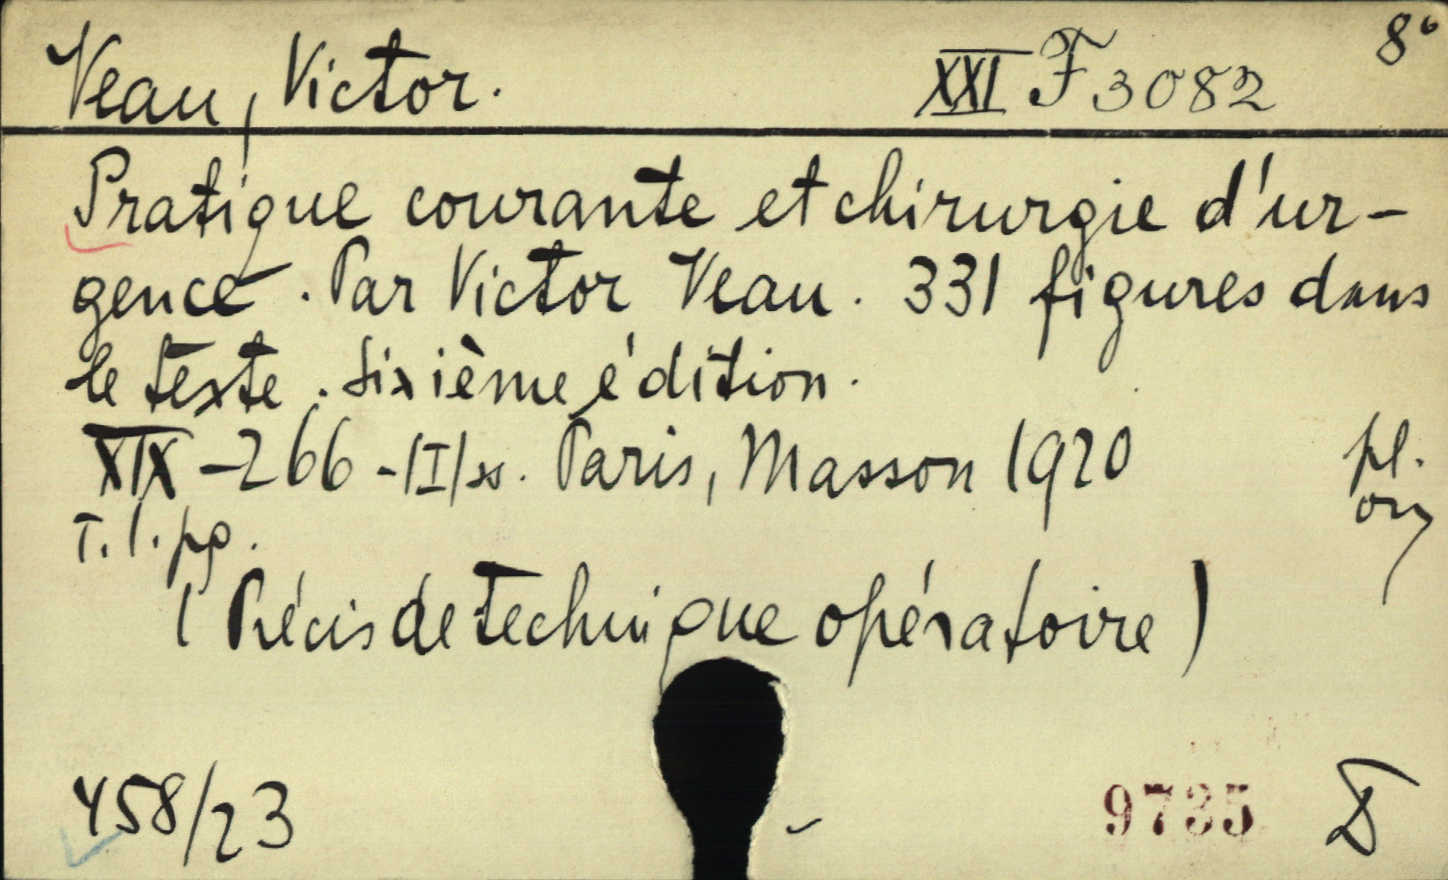 Veau, Victor. XXI F 3082 8°
Pratique courante et chirurgie d'ur-
gence. Par Victor Veau. 331 figures dans
le texte. Sixième édition.
XIX-266-/I/ss. Paris, Masson 1920 pl.
T. l. pg.
(Précis de technique opératoire)
458/23 9735